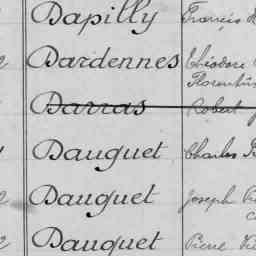 Dapilly François
Dardennes Théodore
Florentin
Darras Robert
Dauguet Charles
2 Dauguet Joseph
2 Dauguet Pierre